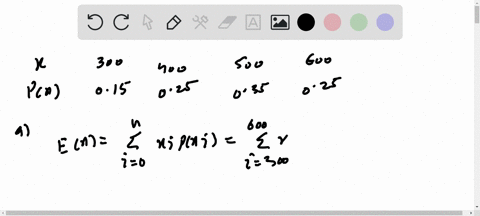 x 300 400 500 600
P(x) 0.15 0.25 0.35 0.25
a) E(x) = n Σ i=0 xi p(xi) = 600 Σ i=300 r